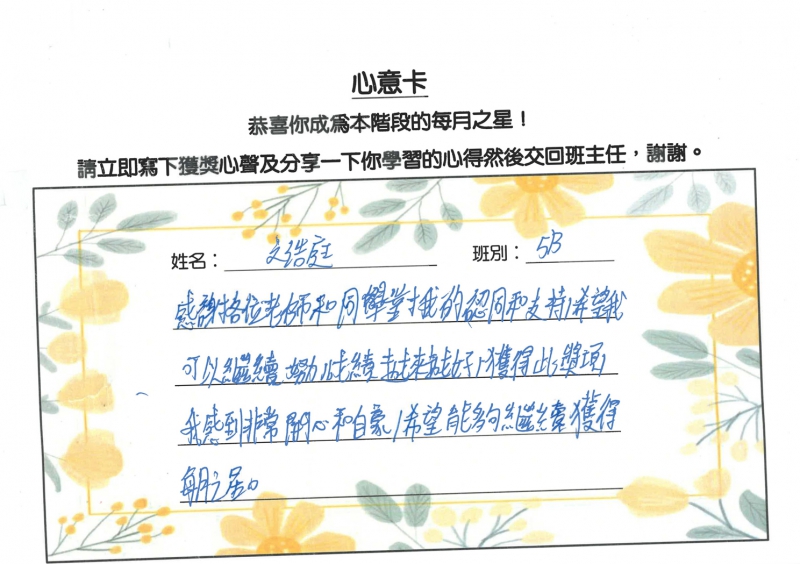 心意卡
恭喜你成為本階段的每月之星！
請立即寫下獲獎心聲及分享一下你學習的心得然後交回班主任，謝謝。
姓名： 文浩庭 班別： 5B
感謝各位老師和同學對我的認同和支持，希望我
可以繼續努力，成績越來越好，獲得此獎項，
我感到非常開心和自豪，希望能夠繼續獲得
每月之星。